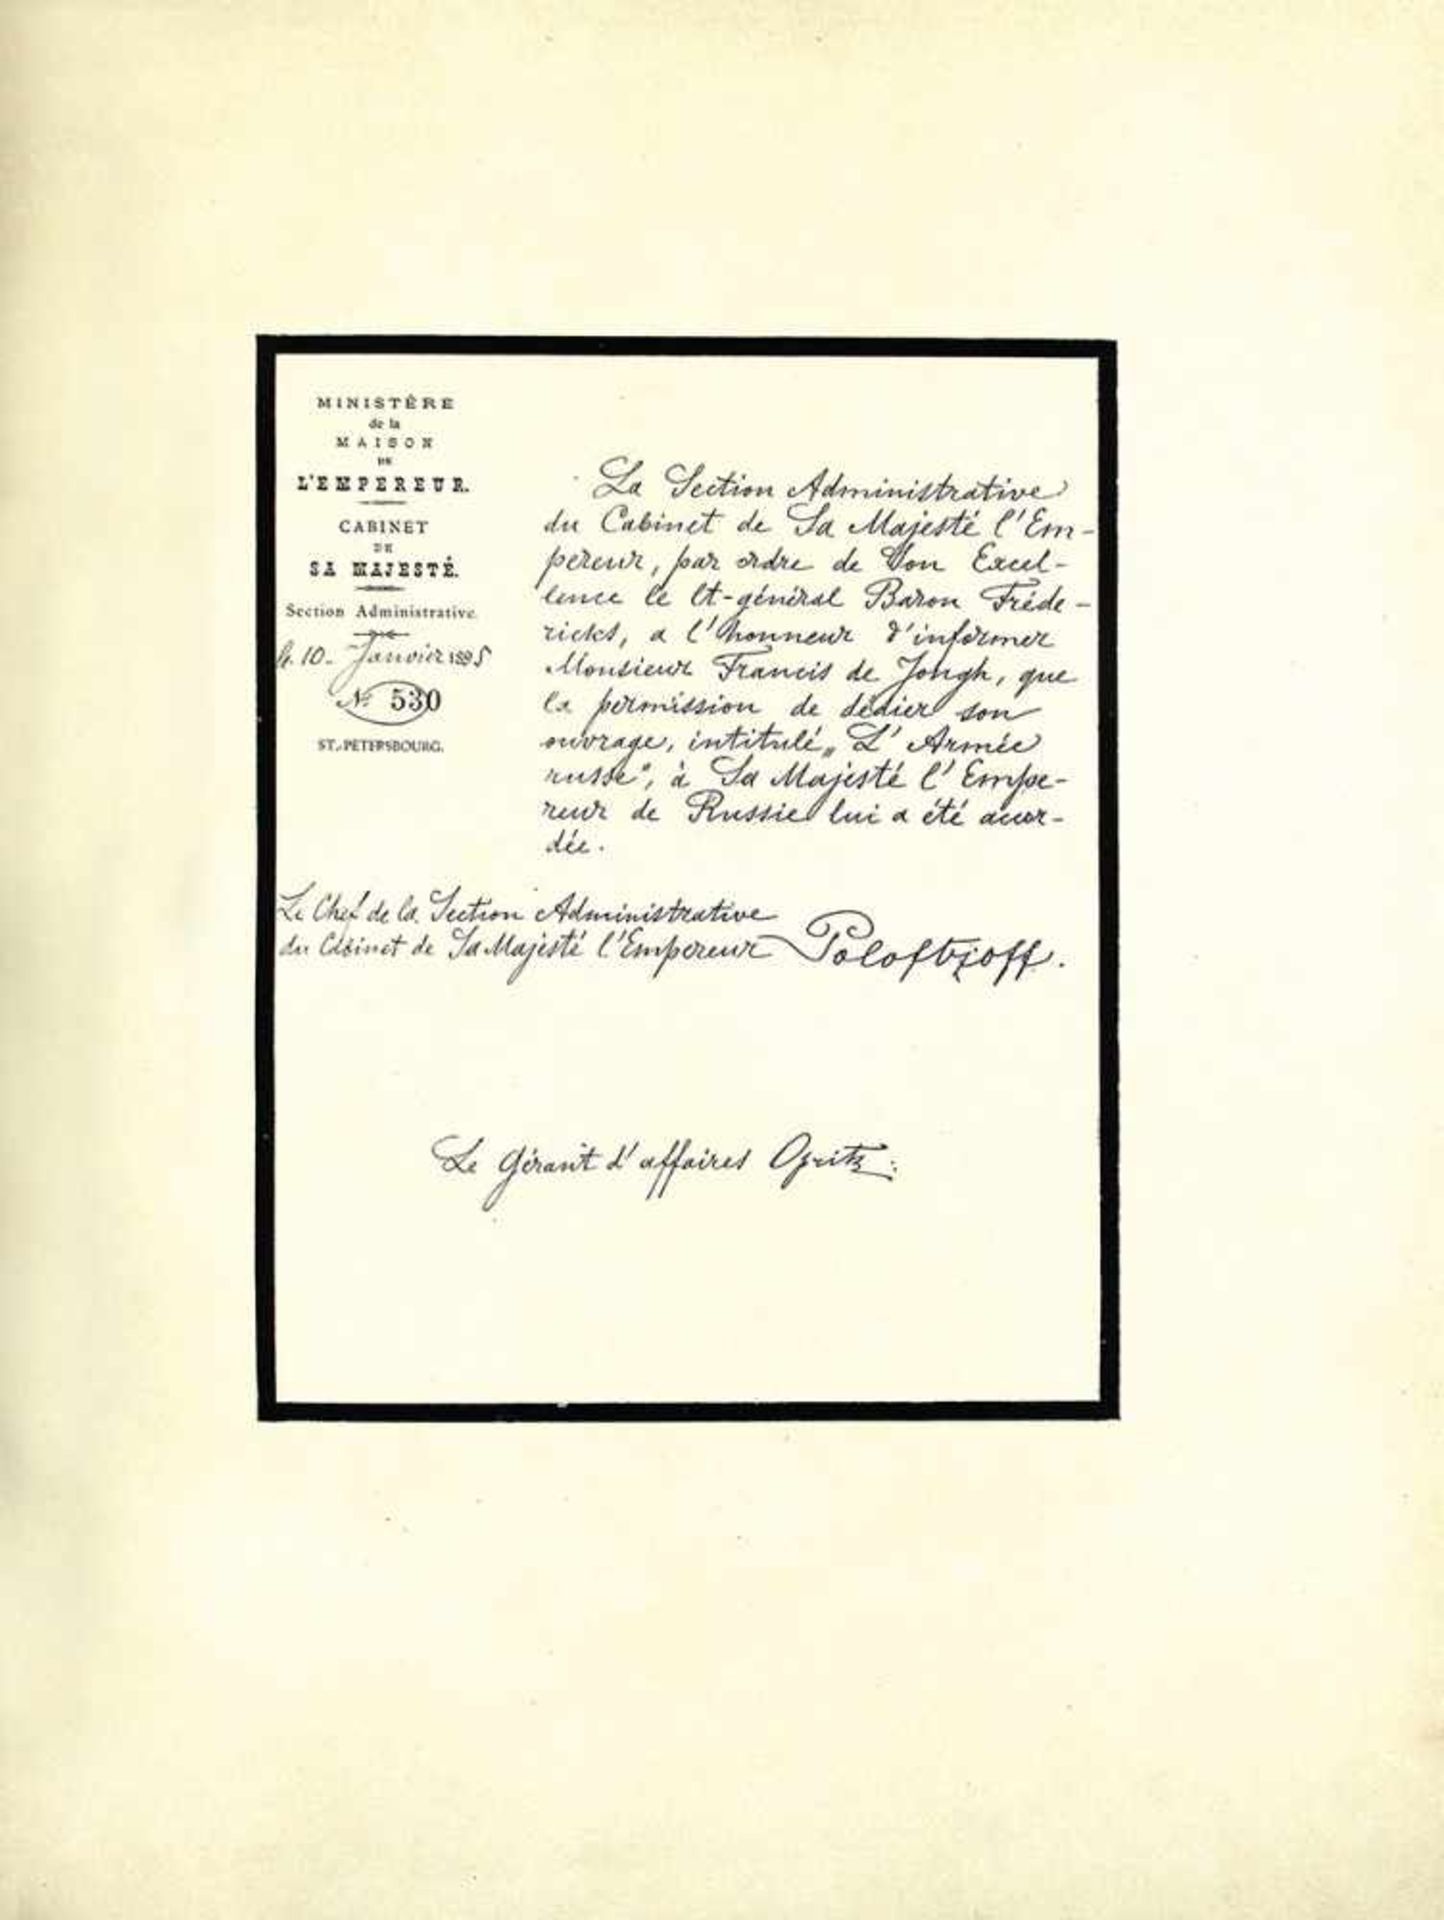 MINISTÈRE
de la
MAISON
DE
L'EMPEREUR.
CABINET
DE
SA MAJESTÉ.
Section Administrative.
le 10 Janvier 1895
№ 530
ST.-PETERSBOURG.
La Section Administrative
du Cabinet de Sa Majesté l'Em-
pereur, par ordre de Son Excel-
lence le lt-général Baron Fréde-
ricks, a l'honneur d'informer
Monsieur Francis de Jongh, que
la permission de dédier son
ouvrage, intitulé „L'Armée
russe", à Sa Majesté l'Empe-
reur de Russie lui a été accor-
dée.
Le Chef de la Section Administrative
du Cabinet de Sa Majesté l'Empereur Poloftzoff.
Le Gérant d'affaires